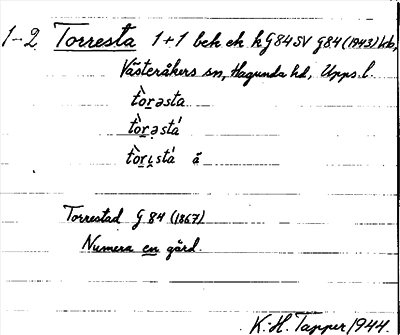 1-2 Torresta 1+1 bek ek k G84SV G84 (1943)
Västeråkers sn, Hagunda hd, Upps. l.
tòrəsta
tòrəstá
tòrı̣stá ä
Torrestad G 84 (1867)
Numera en gård.
K. H. Tapper 1944.